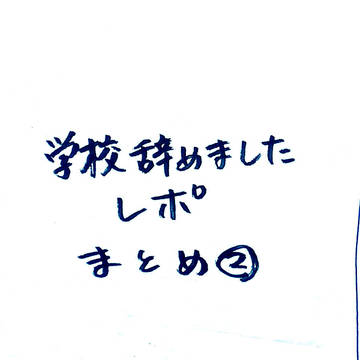 学校辞めました
レポ
まとめ②